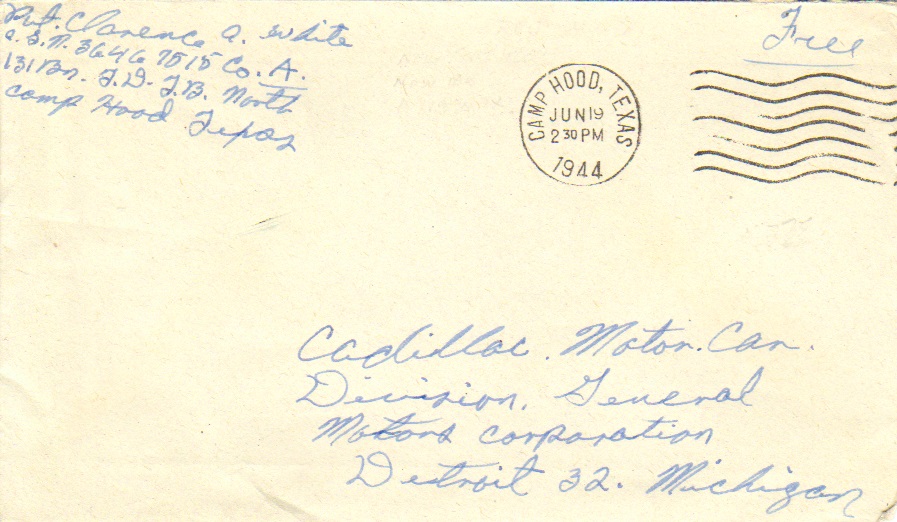 Pvt. Clarence A. White
A.S.N. 36467515 Co. A.
131 Bn. T.D. T.B. North
Camp Hood Texas
Free
CAMP HOOD, TEXAS
JUN 19
2 30 PM
1944
Cadillac. Motor. Car.
Division, General
Motors Corporation
Detroit 32. Michigan